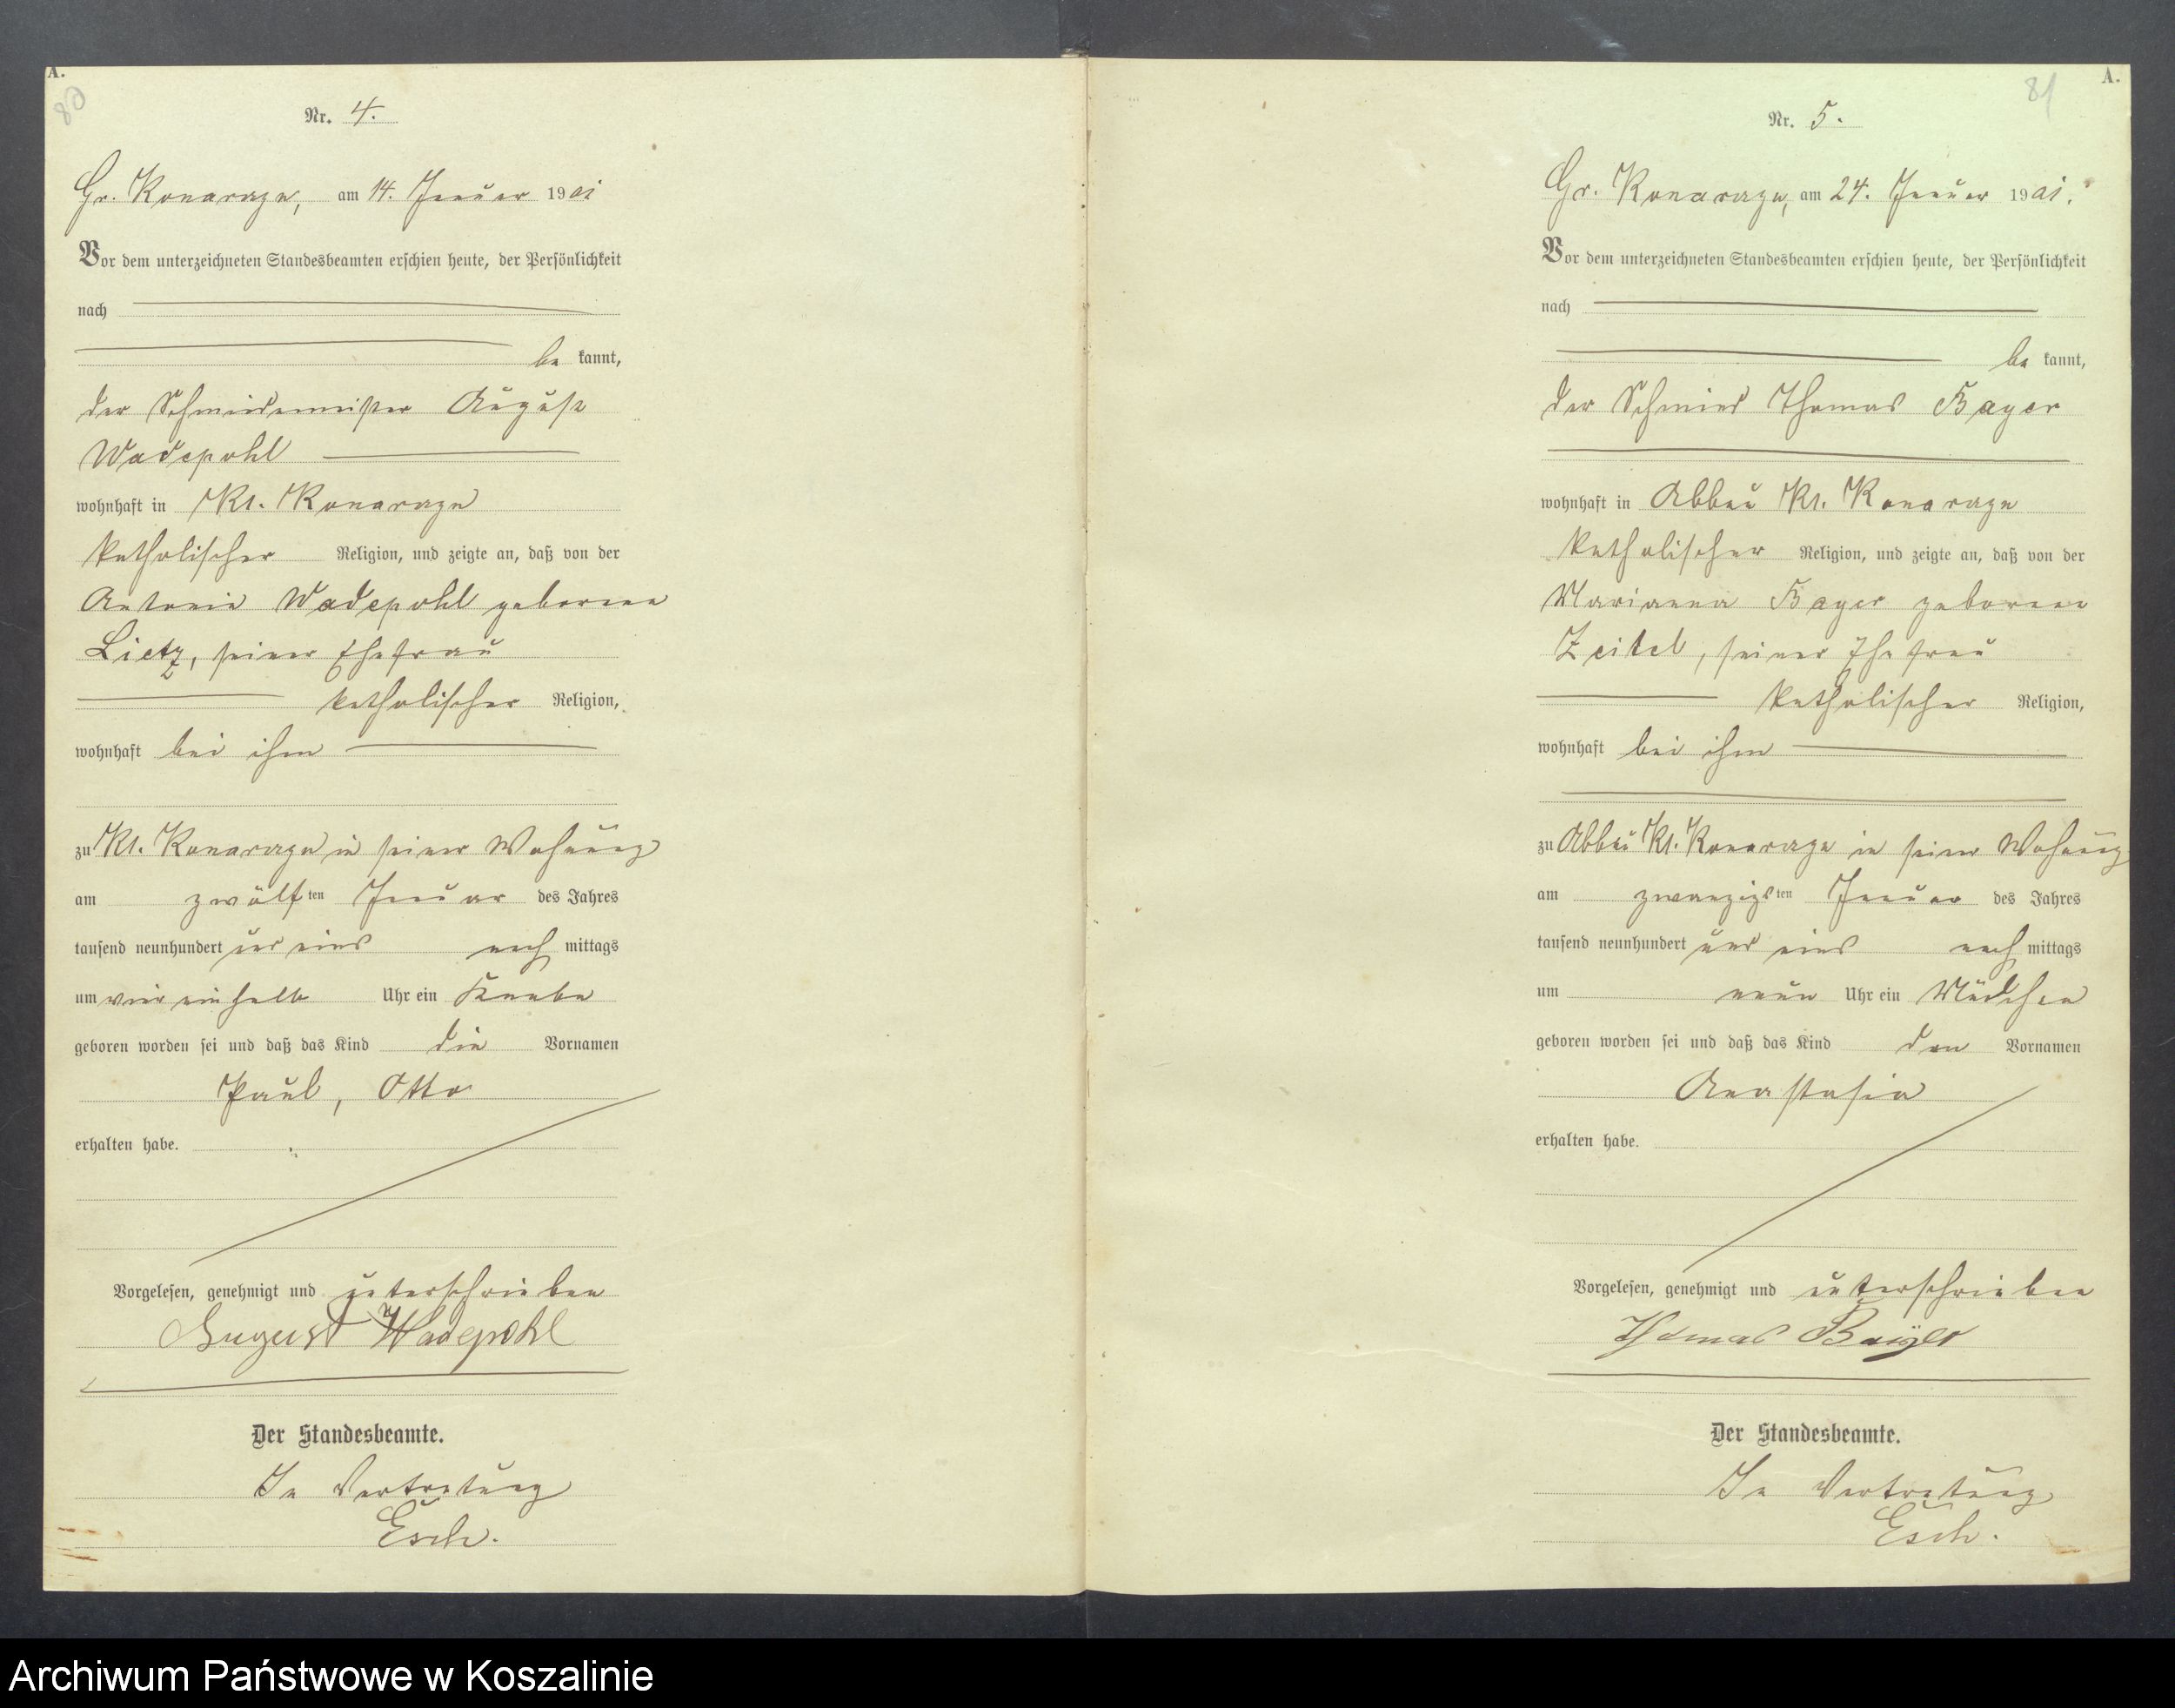 A.
80
Nr. 4.
Gr. Konarczyn, am 14. Januar 1901
Vor dem unterzeichneten Standesbeamten erschien heute, der Persönlichkeit
nach
be kannt,
der Schmiedemeister August
Wadepohl
wohnhaft in Kl. Konarczyn
katholischer Religion, und zeigte an, daß von der
Antonie Wadepohl geborene
Lietz, seiner Ehefrau
katholischer Religion,
wohnhaft bei ihm
zu Kl. Konarczyn in seiner Wohnung
am zwölf ten Januar des Jahres
tausend neunhundert und eins nach mittags
um vier ein halb Uhr ein Knabe
geboren worden sei und daß das Kind die Vornamen
Paul, Otto
erhalten habe.
Vorgelesen, genehmigt und unterschrieben
August Wadepohl
Der Standesbeamte.
In Vertretung
Esch.
A.
81
Nr. 5.
Gr. Konarczyn, am 24. Januar 1901.
Vor dem unterzeichneten Standesbeamten erschien heute, der Persönlichkeit
nach
be kannt,
der Schmied Thomas Bayer
wohnhaft in Abbau Kl. Konarczyn
katholischer Religion, und zeigte an, daß von der
Marianna Bayer geborene
Zeitel, seiner Ehefrau
katholischer Religion,
wohnhaft bei ihm
zu Abbau Kl. Konarczyn in seiner Wohnung
am zwanzigs ten Januar des Jahres
tausend neunhundert und eins nach mittags
um neun Uhr ein Mädchen
geboren worden sei und daß das Kind den Vornamen
Anastasia
erhalten habe.
Vorgelesen, genehmigt und unterschrieben
Thomas
Der Standesbeamte.
In Vertretung
Esch.
Archiwum Państwowe w Koszalinie